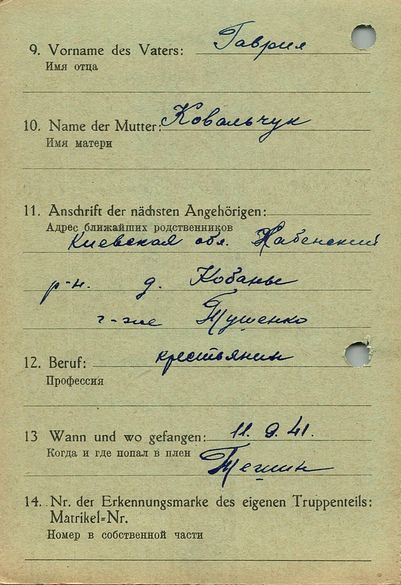 9. Vorname des Vaters: Гаврил
Имя отца
10. Name der Mutter: Ковальчук
Имя матери
11. Anschrift der nächsten Angehörigen:
Адрес ближайших родственников
Киевская обл. Хабенский
р-н. д. Кобанье
Тушенко
12. Beruf: крестьянин
Профессия
13 Wann und wo gefangen: 11.9.41.
Когда и где попал в плен
14. Nr. der Erkennungsmarke des eigenen Truppenteils:
Matrikel-Nr.
Номер в собственной части